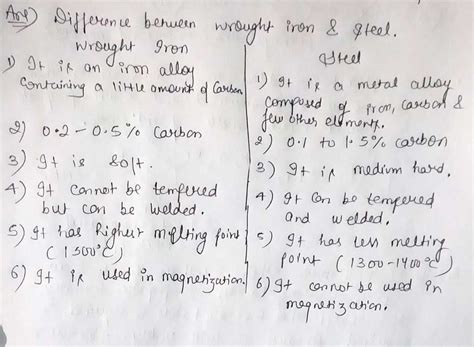 Ans) Difference between wrought iron & steel.
Wrought Iron
1) It is an iron alloy
containing a little amount of carbon
2) 0.2 - 0.5% carbon
3) It is soft.
4) It cannot be tempered
but can be welded.
5) It has highest melting point
(1500°C)
6) It is used in magnetization.
Steel
1) It is a metal alloy
composed of iron, carbon &
few other elements.
2) 0.1 to 1.5% carbon
3) It is medium hard.
4) It can be tempered
and welded.
5) It has less melting
point (1300-1400°C)
6) It cannot be used in
magnetization.